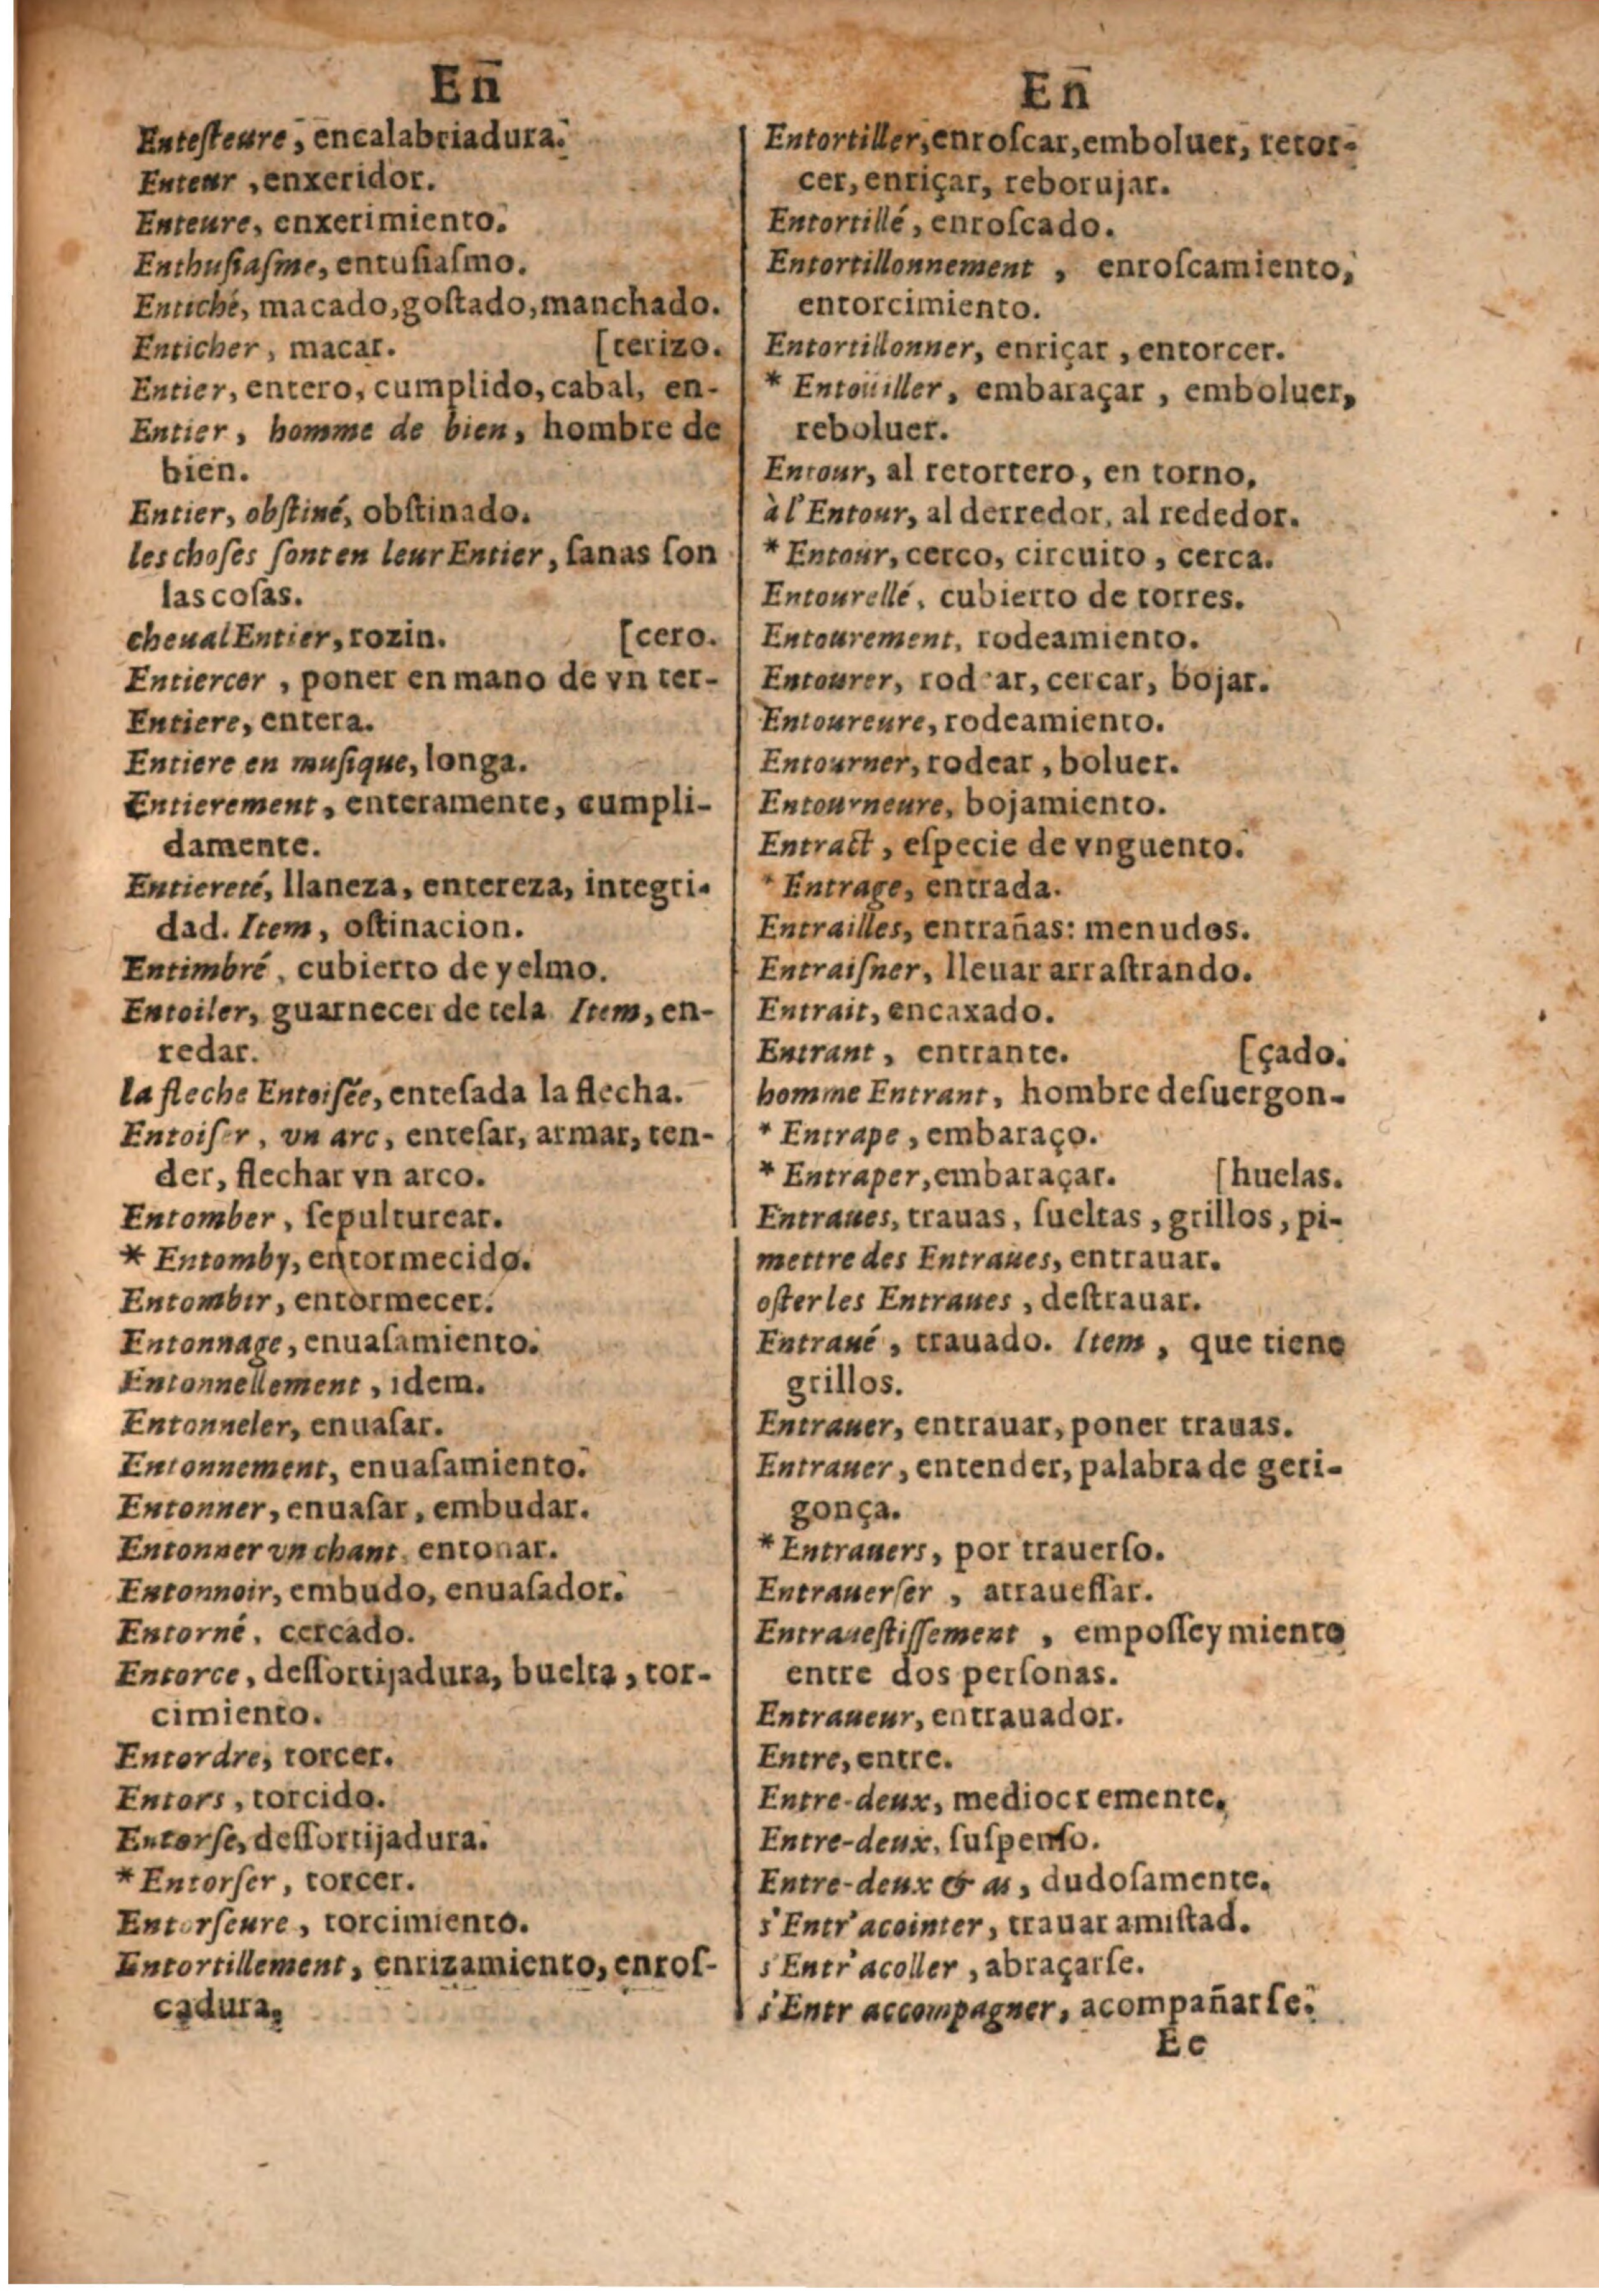 En̄
Enteſteure, encalabriadura.
Enteur, enxeridor.
Enteure, enxerimiento.
Enthuſiaſme, entuſiaſmo.
Entiché, macado, goſtado, manchado.
Enticher, macar. [terizo.
Entier, entero, cumplido, cabal, en-
Entier, homme de bien, hombre de
bien.
Entier, obſtiné, obſtinado.
les choſes ſont en leur Entier, ſanas ſon
las coſas.
cheual Entier, rozin. [cero.
Entiercer, poner en mano de vn ter-
Entiere, entera.
Entiere en muſique, longa.
Entierement, enteramente, cumpli-
damente.
Entiereté, llaneza, entereza, integri-
dad. Item, oſtinacion.
Entimbré, cubierto de yelmo.
Entoiler, guarnecer de tela. Item, en-
redar.
la fleche Entoiſée, enteſada la flecha.
Entoiſer, vn arc, enteſar, armar, ten-
der, flechar vn arco.
Entomber, ſepulturear.
* Entomby, entormecido.
Entombir, entormecer.
Entonnage, enuaſamiento.
Entonnellement, idem.
Entonneler, enuaſar.
Entonnement, enuaſamiento.
Entonner, enuaſar, embudar.
Entonner vn chant, entonar.
Entonnoir, embudo, enuaſador.
Entorné, cercado.
Entorce, deſſortijadura, buelta, tor-
cimiento.
Entordre, torcer.
Entors, torcido.
Entorſe, deſſortijadura.
* Entorſer, torcer.
Entorſeure, torcimiento.
Entortillement, enrizamiento, enroſ-
cadura,
En̄
Entortiller, enroſcar, emboluer, retor-
cer, enriçar, reborujar.
Entortillé, enroſcado.
Entortillonnement, enroſcamiento,
entorcimiento.
Entortillonner, enriçar, entorcer.
* Entoüiller, embaraçar, emboluer,
reboluer.
Entour, al retortero, en torno.
à l'Entour, al derredor, al rededor.
* Entour, cerco, circuito, cerca.
Entourellé, cubierto de torres.
Entourement, rodeamiento.
Entourer, rodear, cercar, bojar.
Entoureure, rodeamiento.
Entourner, rodear, boluer.
Entourneure, bojamiento.
Entract, eſpecie de vnguento.
* Entrage, entrada.
Entrailles, entrañas: menudos.
Entraiſner, lleuar arraſtrando.
Entrait, encaxado.
Entrant, entrante. [çado.
homme Entrant, hombre deſuergon-
* Entrape, embaraço.
* Entraper, embaraçar. [huelas.
Entraues, trauas, ſueltas, grillos, pi-
mettre des Entraues, entrauar.
oſter les Entraues, deſtrauar.
Entraué, trauado. Item, que tiene
grillos.
Entrauer, entrauar, poner trauas.
Entrauer, entender, palabra de geri-
gonça.
* Entrauers, por trauerſo.
Entrauerſer, atraueſſar.
Entraueſtiſſement, empoſſeymiento
entre dos perſonas.
Entraueur, entrauador.
Entre, entre.
Entre-deux, mediocremente.
Entre-deux, ſuſpenſo.
Entre-deux & as, dudoſamente.
s'Entr'acointer, trauar amiſtad.
s'Entr'acoller, abraçarſe.
s'Entr accompagner, acompañarſe.
Ee